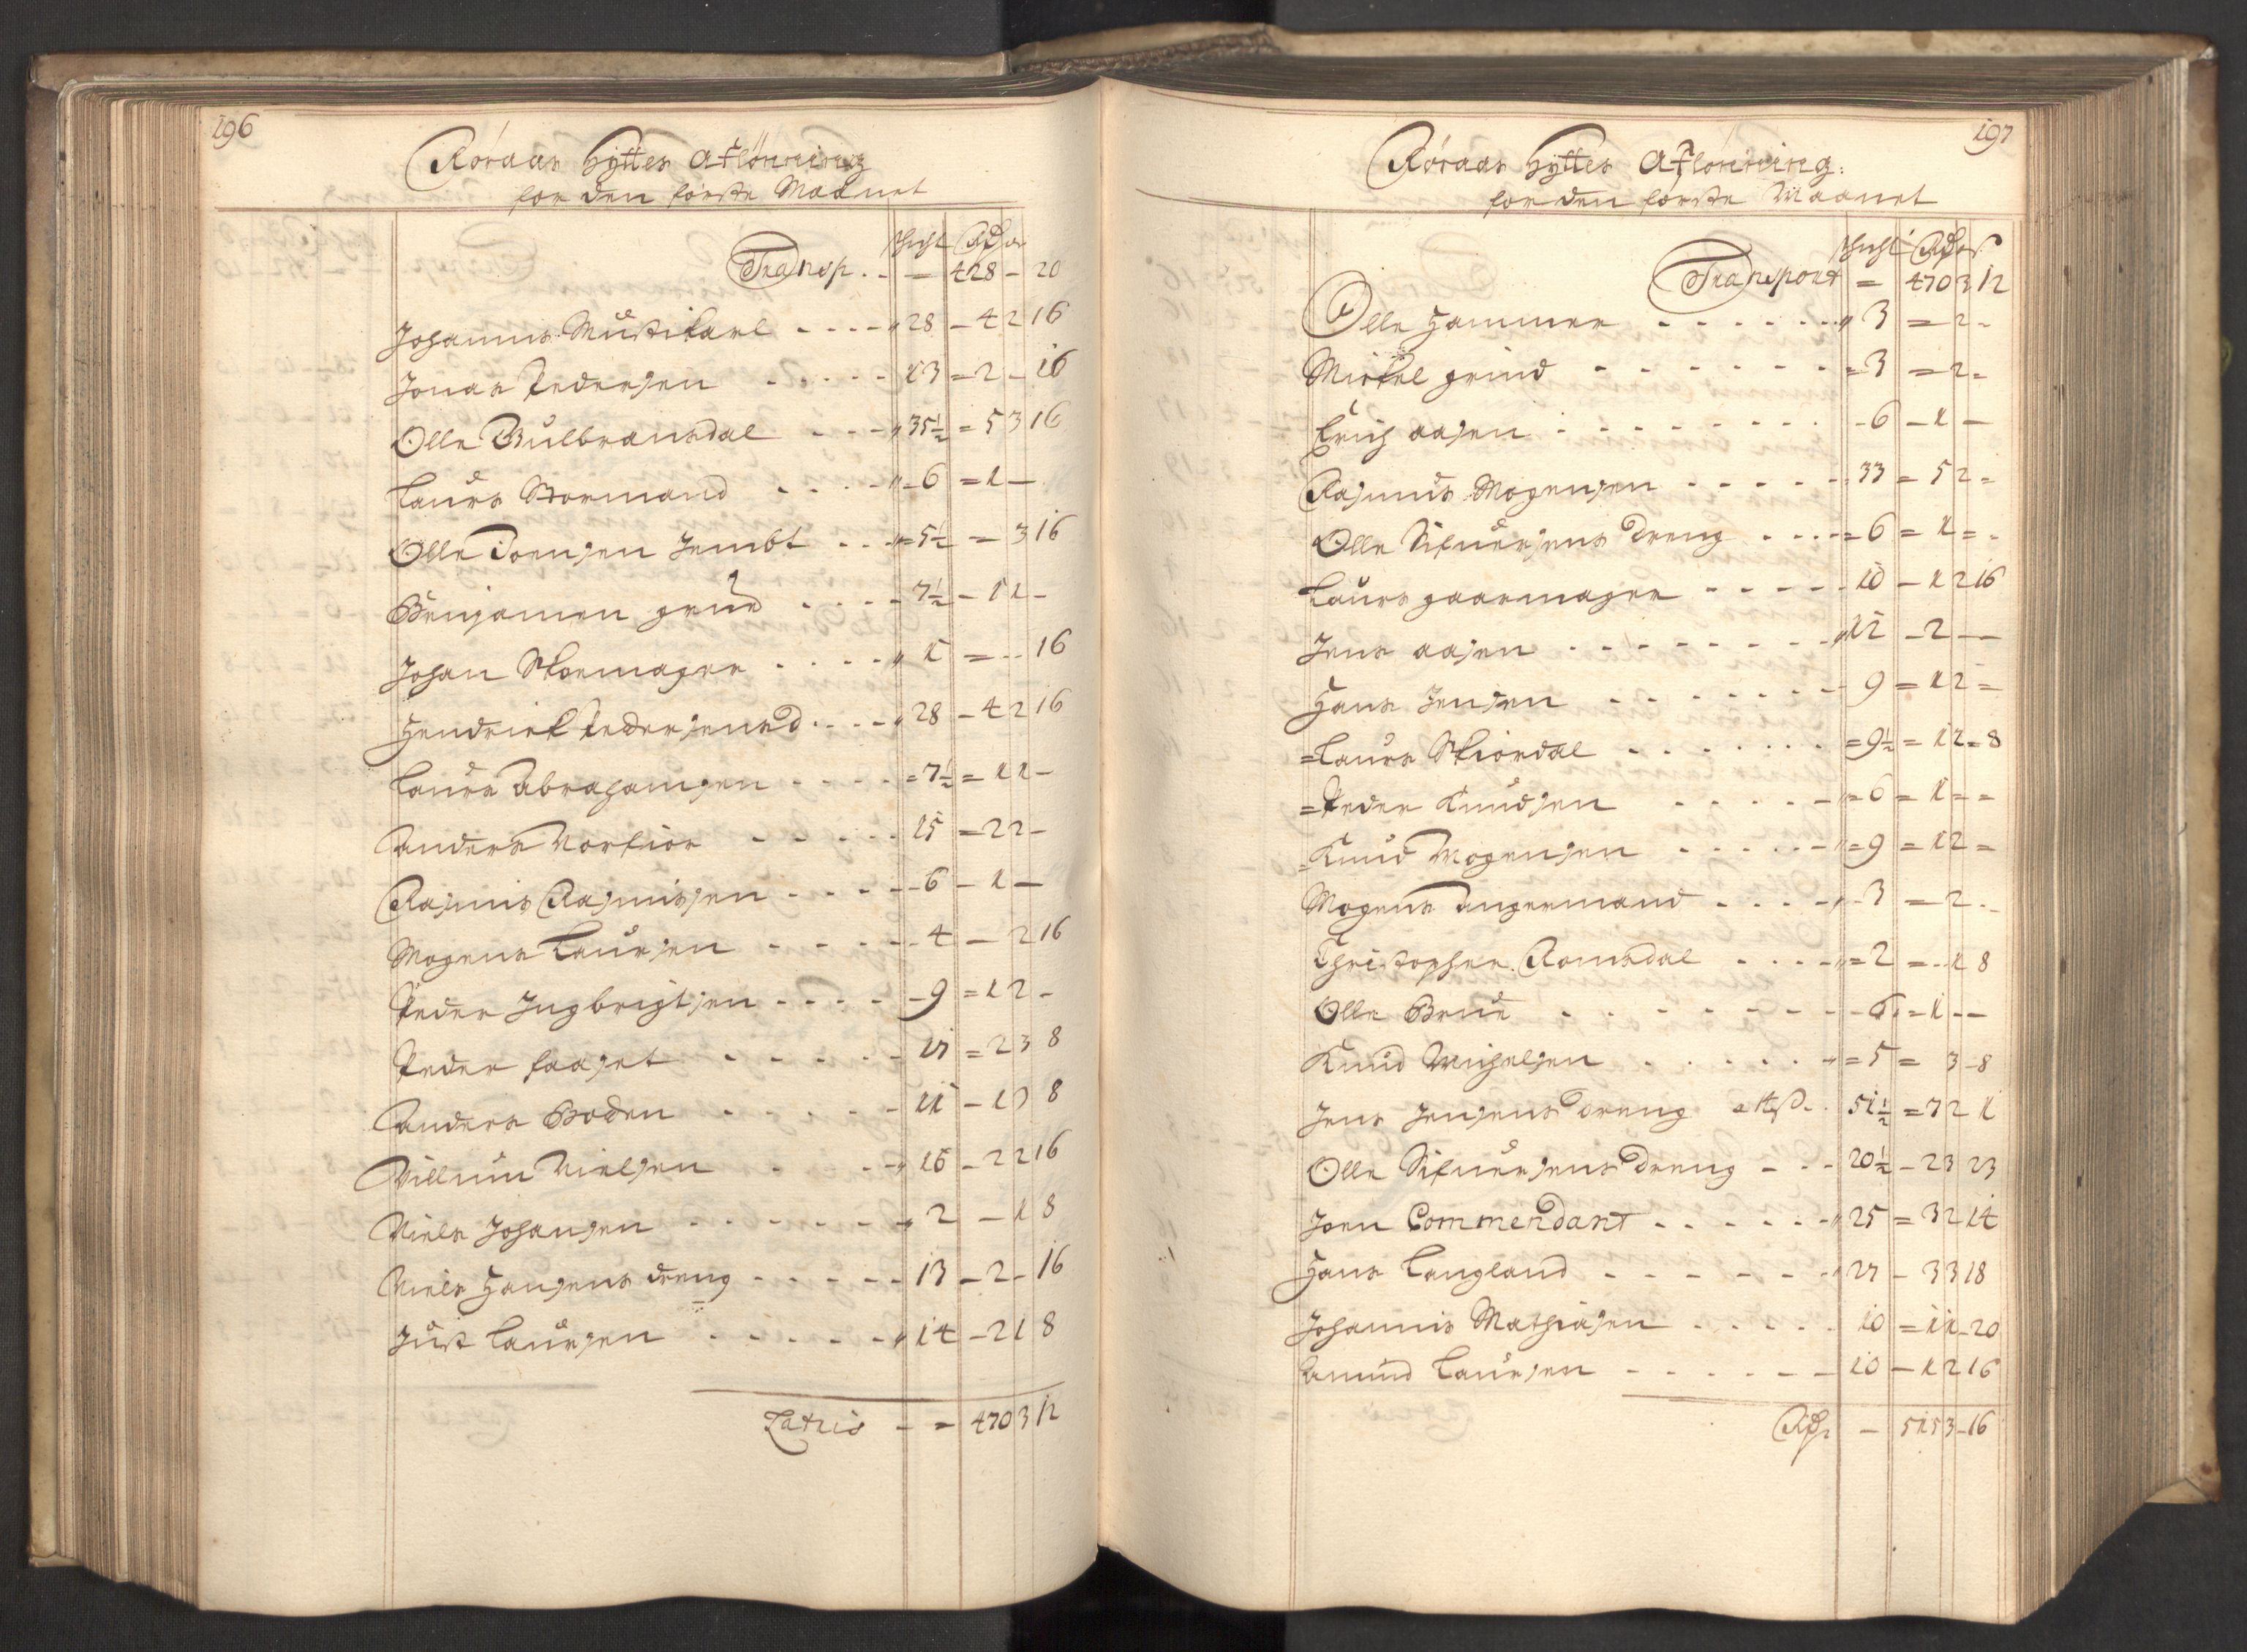 196
Røraas Hÿttes Aflønning
for den første Maanet
Schicht Rdr
Transp. - 428 - 20
Johannis Musticarl - - - - 28 - 4 2 16
Jonas Pedersen - - - - - 13 = 2 - 16
Olle Gulbransdal - - - 35½ = 5 3 16
Laurs Normand - - - - 6 = 1 -
Olle Joensen Jembt - - - 5½ = 3 16
Benjamen grud - - - - 7½ - 1 1 -
Johan Skoemager - - - - 1 = - 16
Hendrick Pedersens d. - - - 28 - 4 2 16
Laurs Abrahamsen - - - - = 7½ = 1 1 -
Anders Norkior - - - - - 15 = 2 2 -
Rasmus Rasmusen - - - - 6 - 1 -
Mogens Laursen - - - - - 4 - 2 16
Peder Jngbrigtsen - - - - - 9 = 1 2 -
Peder faaset - - - - - 17 = 2 3 8
Anders Boden - - - - - 11 - 1 3 8
Villum Nielsen - - - 16 - 2 2 16
Niels Johansen - - - - - - 2 - 1 8
Niels Hansens dreng - - - - - 13 - 2 - 16
Just Laursen - - - - - 14 - 2 1 8
Latris - = 470 3 12
197
Røraas Hÿttes Aflønning:
for den første Maanet
Schicht Rdr
Transport = 470 3 12
Olle Hammer - - - - - - - 3 = 2 -
Mickel grind - - - - - - - = 3 = 2 =
Erich aasen - - - - - - - - - 6 - 1 -
Rasmus Mogensen - - - - - 33 = 5 2 =
Olle Sifuersens Dreng - - - - = 6 = 1 = -
Laurs gaarmager - - - - - 10 - 1 2 16
Jens aasen - - - - - - - - 12 - 2 - -
Hans Jensen - - - - - - - 9 = 1 2 =
= Laurs Skiordal - - - - - - - = 9½ = 1 2 = 8
= Peder Knudsen - - - - - = 6 = 1 = =
= Knud Mogensen - - - - - = 9 = 1 2 =
Mogens Angermand - - - - - 3 = 2 -
Christopher Romsdal - - - - = 2 = - 1 8
Olle Brud - - - - - - - - - 6 = 1 - -
Knud Michelsen - - - - - = 5 = 3 - 8
Jens Jensens Dreng - - 51½ = 7 2 1
Olle Sifuersens Dreng - - - 20½ - 2 3 23
Joen Commendant - - - - - - 25 = 3 2 14
Hans Langland - - - - - - 27 - 3 3 18
Johannis Mathiasen - - - - - 10 = 1 1 - 20
Amund Laursen - - - - - - 10 - 1 2 16
Rdr - 515 3 - 16